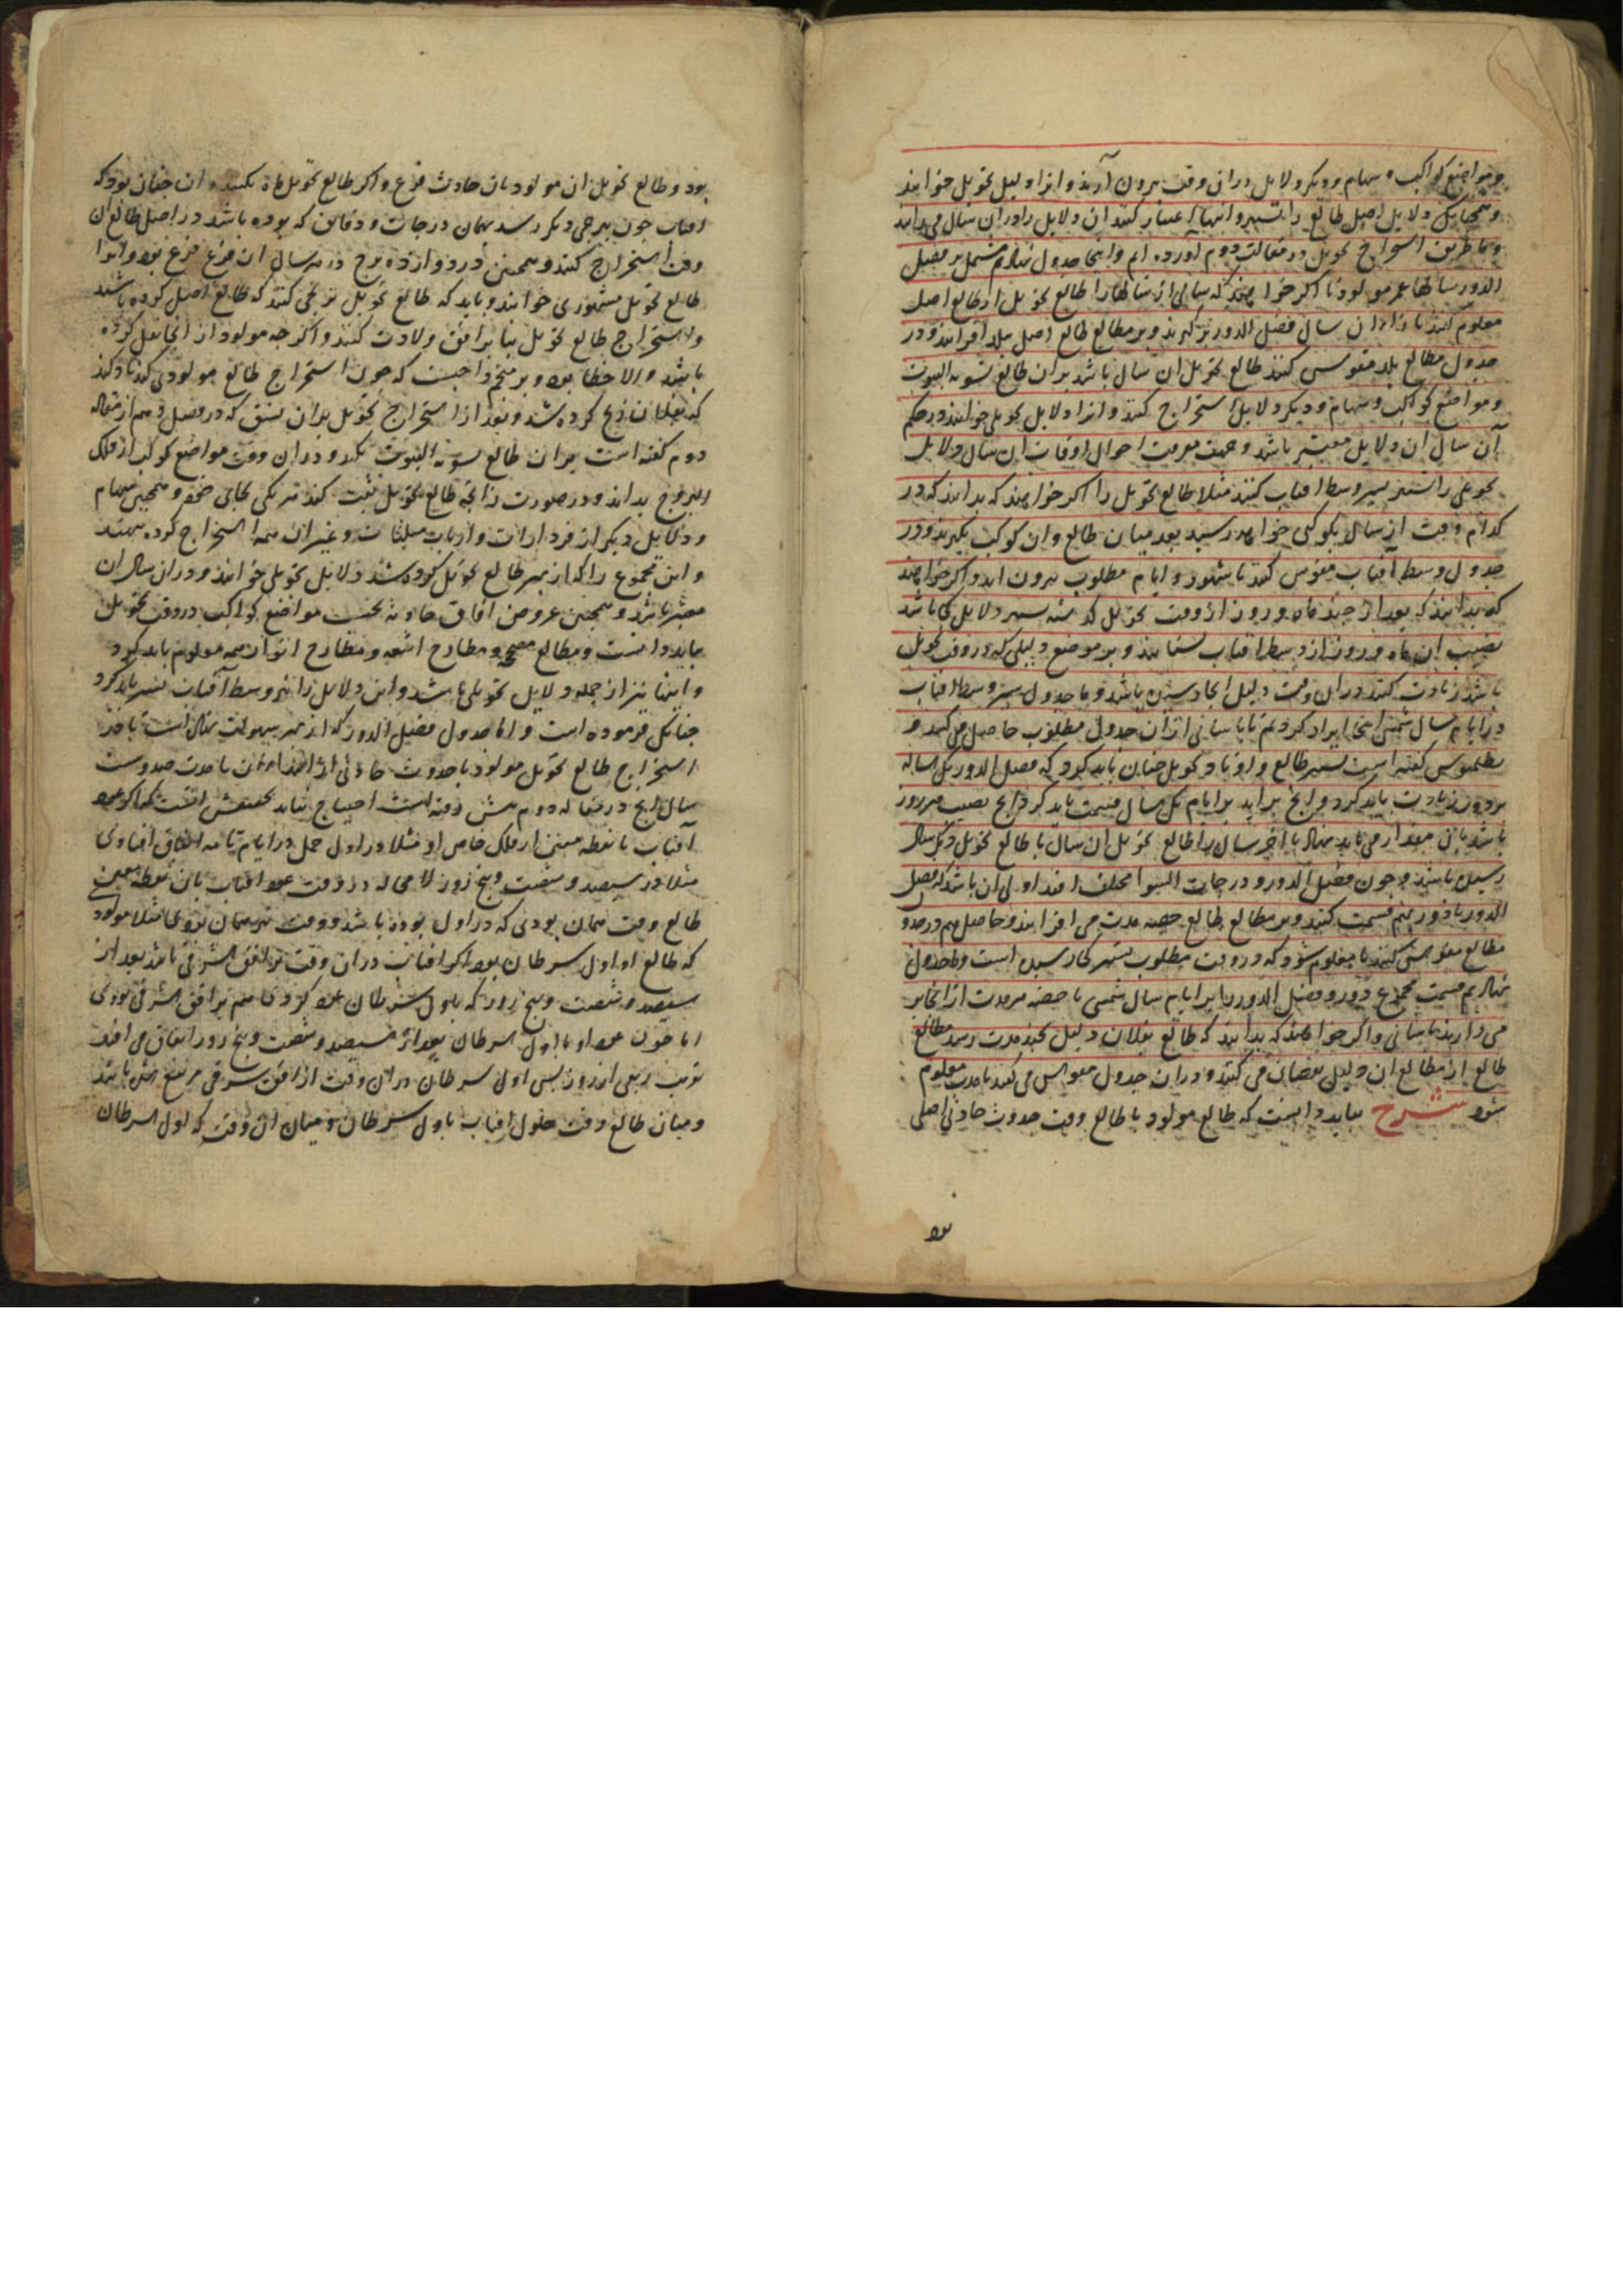 و مواضع کواکب و سهام و دیگر دلایل در ان وقت بیرون آرند و انرا دلیل تحویل خوانند
و همچنانک دلایل اصل طالع را تسییر و انتها اعتبار کنند ان دلایل را در ان سال می رانند
و ما طریق استخراج تحویل در مقالت دوم اورده ام و اینجا جدول نهادم مشتمل بر فضل
الدور سالهاء عمر مولود تا اکر خواهند که سالی از سالها را طالع تحویل از طالع اصل
معلوم کنند بازاء ان سال فضل الدور بر کیرند و بر مطالع طالع اصل ببلد افزایند و در
جدول مطالع بلد مقوس کنند طالع تحویل ان سال باشد بر ان طالع تسویة البیوت
و مواضع کواکب و سهام و دیگر دلایل استخراج کنند و انرا دلایل تحویلی خوانند و در حکم
آن سال ان دلایل معتبر باشد و جهت معرفت احوال اوقات ان سال دلایل
تحویلی را تسییر بسیر وسط افتاب کنند مثلا طالع تحویل را اکر خواهند که بدانند که در
کدام وقت از سال بکوکبی خواهد رسید بعد میان طالع و ان کوکب بکیرند و در
جدول وسط آفتاب مقوس کنند تا شهور و ایام مطلوب بیرون اید و اکر خواهند
که بدانند که بعد از چند ماه و روز از وقت تحویل کذشته تسییر دلایل کجا باشد
نصیب ان ماه و روز از وسط افتاب بستانند و بر موضع دلیلی که در وقت تحویل
باشد زیادت کنند در ان وقت دلیل انجا رسیده باشد و ما جدول تسییر وسط افتاب
در ایام سال شمسی اینجا ایراد کردیم تا باسانی از ان جدول مطلوب حاصل می کنند و
بطلمیوس کفته است تسییر طالع و اوتاد تحویل چنان باید کرد که فضل الدور یکساله
بر دور زیادت باید کرد و انچ بر اید بر ایام یک سال قسمت باید کرد انچ نصیب هر روز
باشد بان مقدار می باید نهاد تا اخر سال را طالع تحویل ان سال با طالع تحویل دیگر سال
رسیده باشد و چون فضل الدور و درجات السوا مختلف افتد اولی ان باشد که فضل
الدور با دور بهم قسمت کنند و بر مطالع طالع حصه مدت می افزایند و حاصل هم در جدول
مطالع مقوس کنند تا معلوم شود که در وقت مطلوب تسییر کجا رسیده است و ما جدول
نهادیم قسمت مجموع دور و فضل الدور را بر ایام سال شمسی تا حصه هر مدت از انجا بر
می دارند باسانی و اکر خواهند که بدانند که طالع بفلان دلیل بچند مدت رسد مطالع
طالع از مطالع ان دلیل نقصان می کنند و در ان جدول مقوس می کنند تا مدت معلوم
شود شرح بباید دانست که طالع مولود یا طالع وقت حدوث حادثی اصلی
بود و طالع تحویل ان مولود یا ان حادث فرع و اکر طالع تحویل ماه بکنند و ان چنان بود که
افتاب چون ببرجی دیکر رسد بهمان درجات و دقایق که بوده باشد در اصل طالع ان
وقت استخراج کنند و همچنین در دوازده برج در هر سال ان فرع فرع بود و انرا
طالع تحویل مشهوری خوانند و باید که طالع تحویل بر انجا کنند که طالع اصل کرده باشند
و استخراج طالع تحویل بنا بر افق ولادت کنند و اکر چه مولود از انجا نقل کرده
باشد و الا خطا بود و بر منجم واجبست که چون استخراج طالع مولودی کند یاد کند
که بفلان زیج کرده شد و بعد از استخراج تحویل بدان نسق که در فصل دهم از مقاله
دوم کفته است بر ان طالع تسویة البیوت بکند و در ان وقت مواضع کواکب از فلک
البروج بداند و در صورت زایجه طالع تحویل ثبت کند هر یکی بجای خود و همچنین سهام
و دلایل دیکر از فردارات و ارباب مثلثات و غیر ان همه استخراج کرده بنهند
و این مجموع را که از بهر طالع تحویل کرده شد دلایل تحویلی خوانند و در ان سال ان
معتبر باشد و همچنین عروض افاق حادثه بحسب مواضع کواکب در وقت تحویل
بباید دانست و مطالع مصححه و مطارح اشعه و مطارح انوار همه معلوم باید کرد
و اینها نیز از جمله دلایل تحویلی باشد و این دلایل را نیز بوسط آفتاب تسییر باید کرد
چنانک فرموده است و اما جدول فضل الدور که از بهر سهولت نهاده است تا در
استخراج طالع تحویل مولود یا حدوث حادثی از ابتداء ان تا مدت صد و بیست
سال انچ در مقاله دوم پیش رفته است احتیاج نیاید تحقیقش انست که اکر عود
آفتاب تا نقطه معین از فلک خاص او مثلا در اول حمل در ایام تامه اتفاق افتادی
مثلا در سیصد و شصت و پنج روز لا محاله در وقت عود افتاب بان نقطه معین
طالع وقت همان بودی که در اول بوده باشد و وقت نیز همان بودی مثلا مولود
که طالع او اول سرطان بود اکر افتاب در ان وقت بر افق شرقی باشد بعد از
سیصد و شصت و پنج روز که باول سرطان عود کردی هم بر افق شرقی بودی
اما چون عود او باول سرطان بعد از سیصد و شصت و پنج روز اتفاق می افتد
قریب ربعی از روز پس اول سرطان در ان وقت از افق شرقی مرتفع شده باشد
و میان طالع وقت حلول افتاب باول سرطان و میان ان وقت که اول سرطان